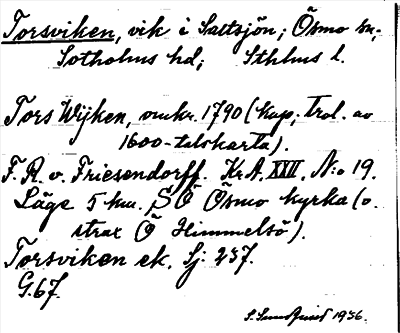 Torsviken, vik i Saltsjön; Ösmo sn,
Sotholms hd; Sthlms l.
Tors Wijken, omkr. 1790 (kop. trol. av
1600-talskarta).
F. R. v. Friesendorff. Kr.A. XVII, N:o 19.
Läge 5 km. SÖ Ösmo kyrka (o.
strax Ö Himmelsö).
Torsviken ek. Sj: 237.
G.67.
1936.